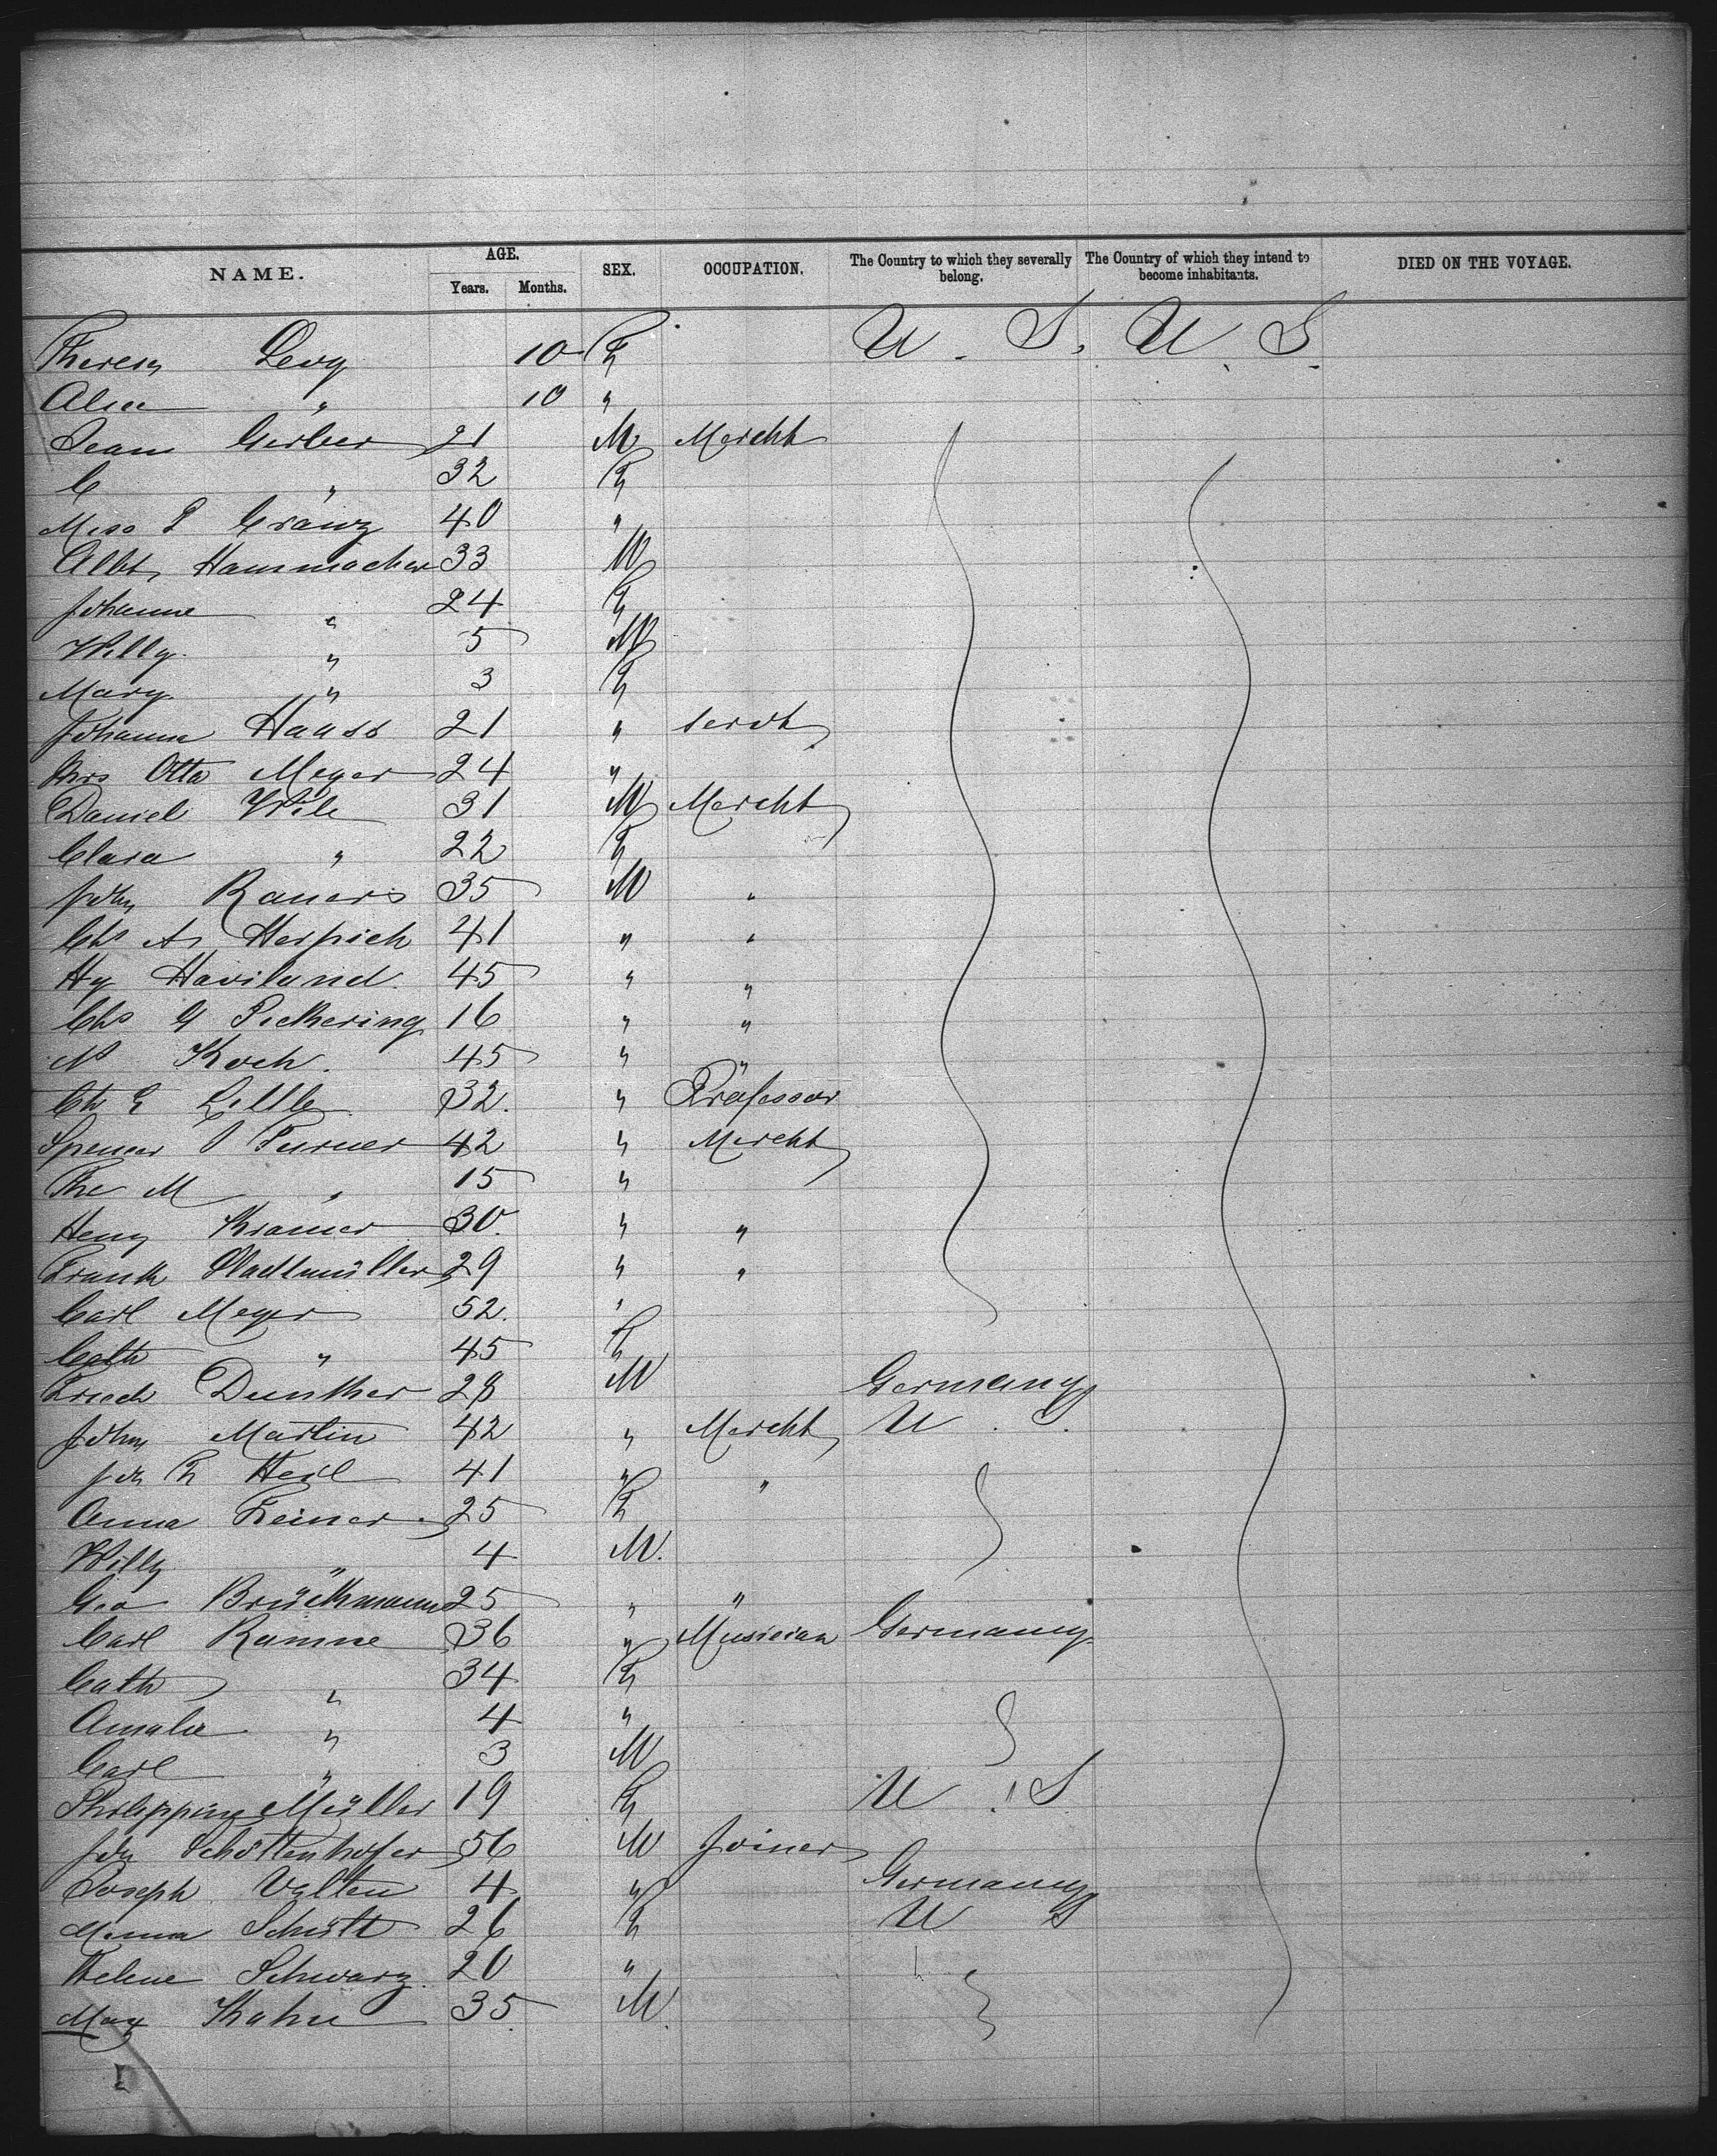 NAME. AGE. Years. Months. SEX. OCCUPATION. The Country to which they severally belong. The Country of which they intend to become inhabitants. DIED ON THE VOYAGE.
Levy 10 F U. S. U. S.
" 10 "
Gerber 21 M Mercht
C " 32 F
Miss 40 "
Albt, Hammacher 33 M
Johanne " 24 F
Willy " 5 M
Mary " 3 F
Johanna Haass 21 " Servt
Mrs Otto Meyer 24 "
Daniel Wile 31 M Mercht
Clara " 22 F
John Rauers 35 M "
Chs A, Herpich 41 " "
Hy Haviland. 45 " "
Chs G Pickering 16 " "
Koch. 45 " "
32. " Professor
Spencer Turner 42 " Mercht
M " 15 "
Henry Kramer 30. " "
Frank Stadtmüller 29 " "
Carl Meyer 52. "
Cath " 45 F
Dunther 28 M Germany
John Martin 42 " Mercht U. S.
41 " "
Anna 25 F
Willy " 4 M.
Geo Brückmann 25 " "
Carl Ramme 36 " Musician Germany
Cath " 34 F
Amalie " 4 "
Carl " 3 M
Philippine Müller 19 F U. S
Schöttenhofer 56 M Joiner
Joseph Velten 4 " Germany
26 F U S
Helene Schwarz 20 "
Max Kahn 35 M.